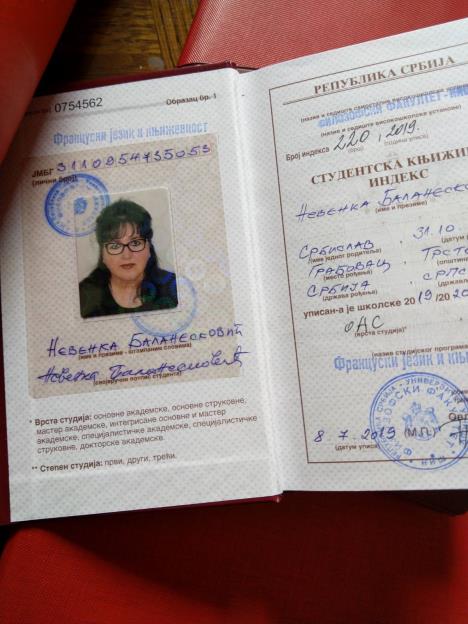 0754562
Образац бр. 1
Француски језик и књижевност
ЈМБГ 3110954735053
(лични број)
НЕВЕНКА БАЛАНЕСКОВИЋ
(име и презиме - штампаним словима)
Невенка Баланесковић
(својеручни потпис студента)
* Врста студија: основне академске, основне струковне,
мастер академске, интегрисане основне и мастер
академске, специјалистичке академске, специјалистичке
струковне, докторске академске.
** Степен студија: први, други, трећи.
РЕПУБЛИКА СРБИЈА
ФИЛОЗОФСКИ ФАКУЛТЕТ
(назив и седиште високошколске установе)
Број индекса 220 / 2019.
(број) (година уписа)
СТУДЕНТСКА
ИНДЕКС
НЕВЕНКА
(име и презиме)
СРБИСЛАВ 31.10.
(име једног родитеља) (датум
ГРАБОВАЦ ТРСТ
(место рођења) (општин
СРБИЈА СРПС
(држава рођења)
уписан-а је школске 2019/20
ОАС
(врста студија)*
(назив студијског програма
Француски језик и
8.7.2019 (М.П.)
(датум уписа)